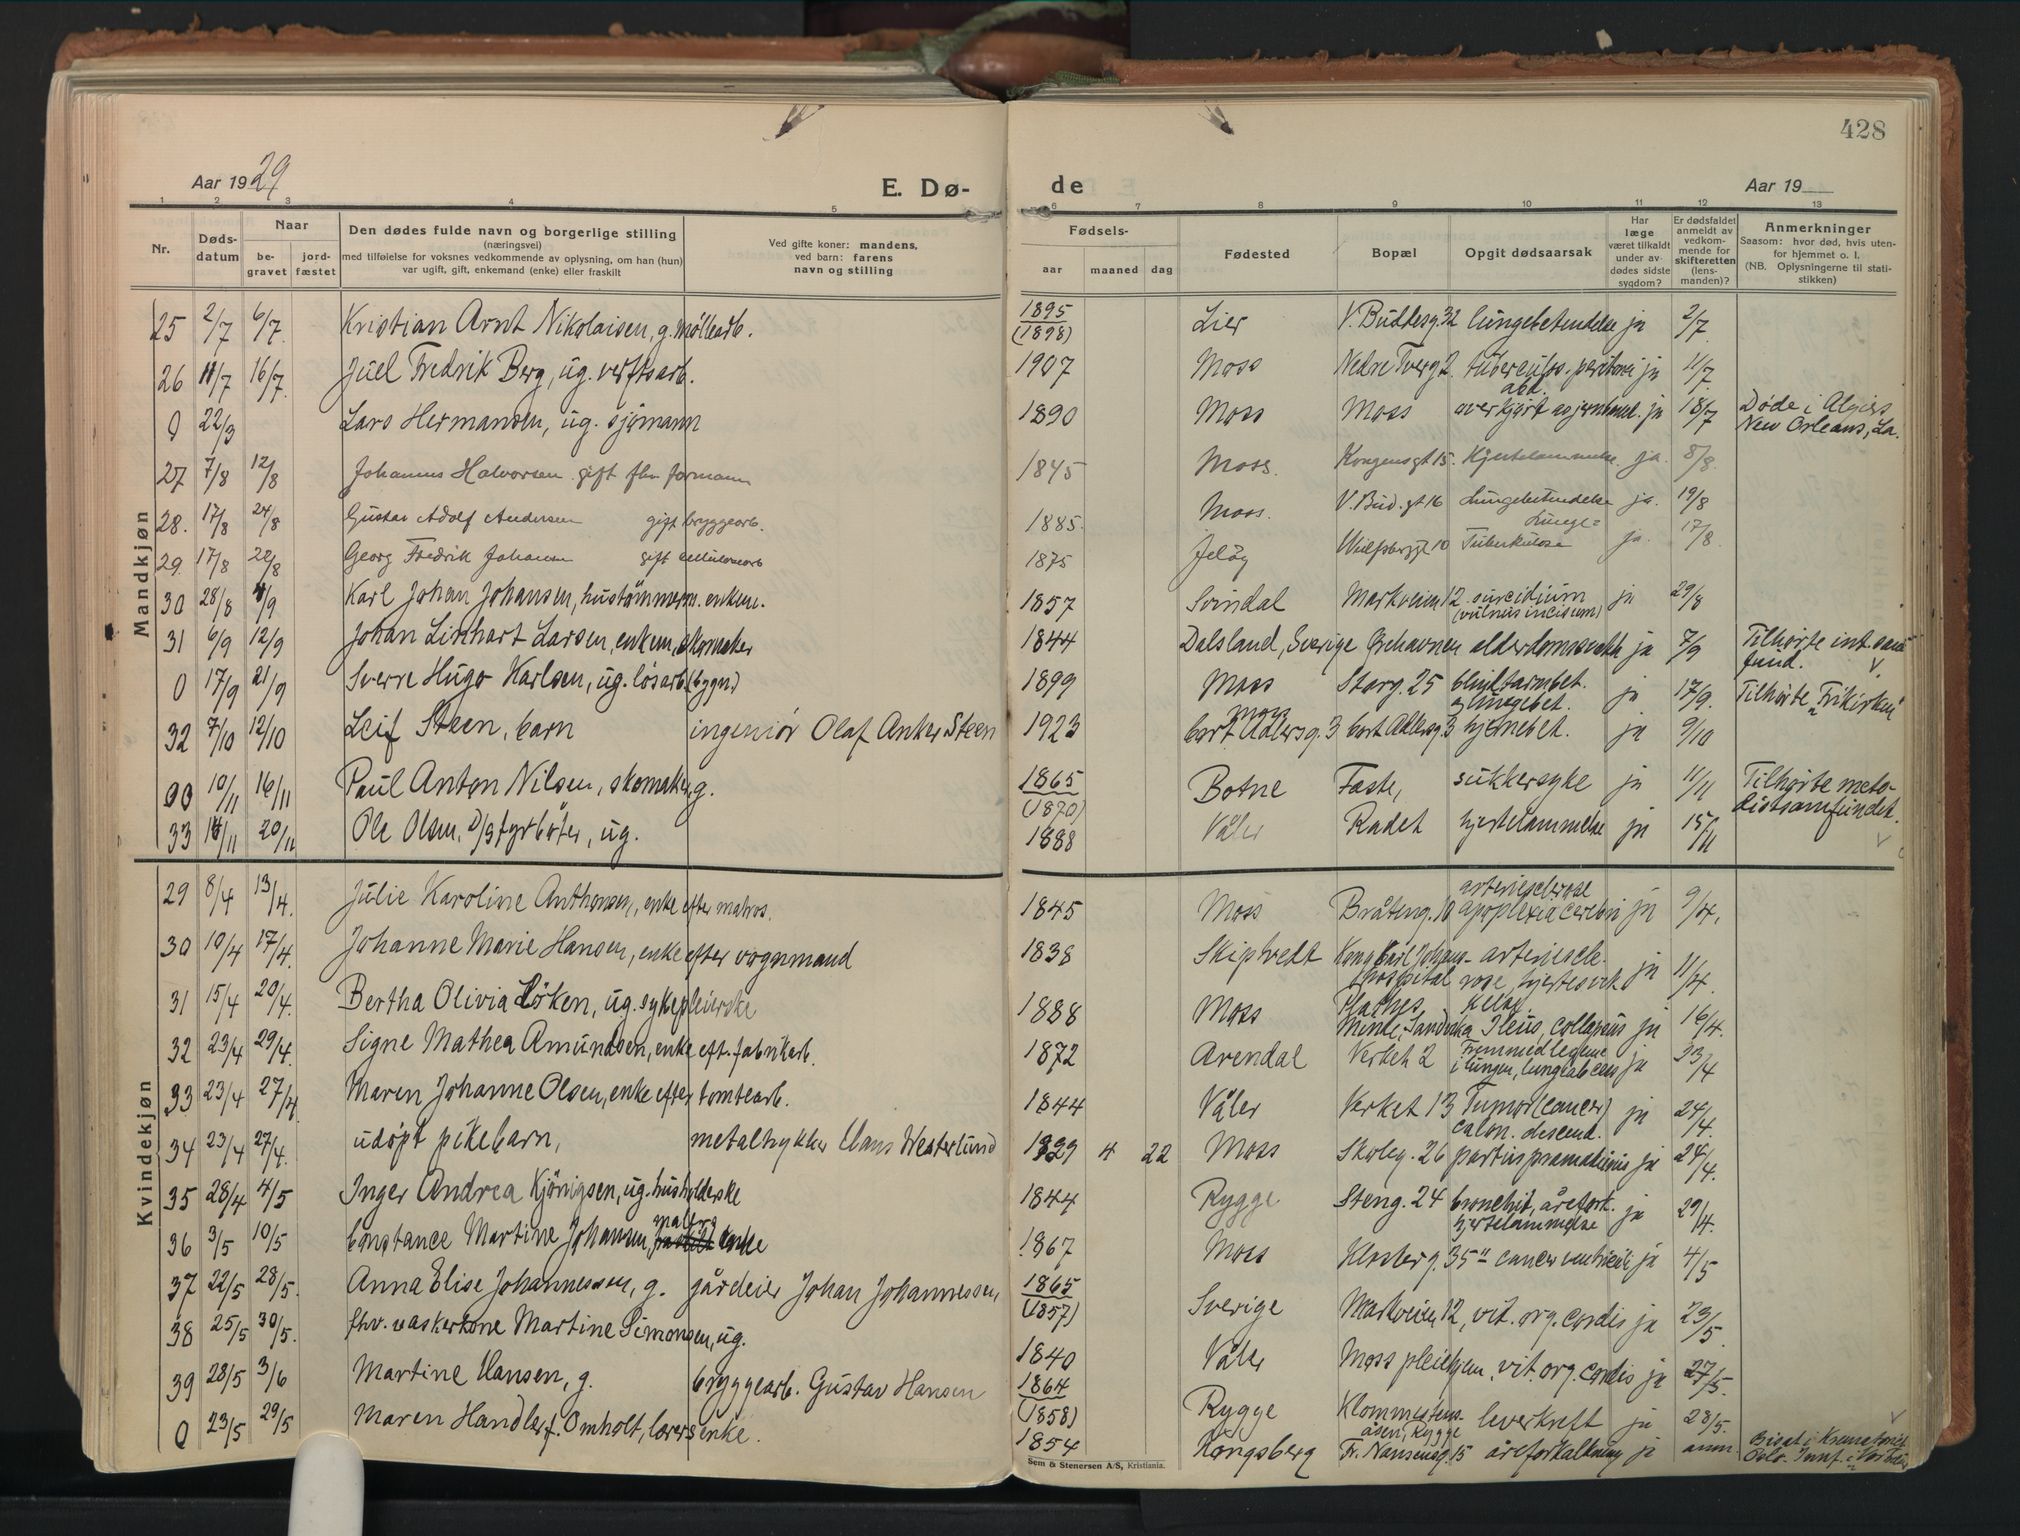 428
Aar 1929
E. Dø-
de
Aar 19
1 2 3 4 5 6 7 8 9 10 11 12 13
Nr.
Døds-
datum
Naar
be-
gravet
jord-
fæstet
Den dødes fulde navn og borgerlige stilling
(næringsvei)
med tilføielse for voksnes vedkommende av oplysning, om han (hun)
var ugift, gift, enkemand (enke) eller fraskilt
Ved gifte koner: mandens,
ved barn: farens
navn og stilling
Fødsels-
aar
maaned
dag
Fødested
Bopæl
Opgit dødsaarsak
Har
læge
været tilkaldt
under av-
dødes sidste
sygdom?
Er dødsfaldet
anmeldt av
vedkom-
mende for
skifteretten
(lens-
manden)?
Anmerkninger
Saasom: hvor død, hvis uten-
for hjemmet o. l.
(NB. Oplysningerne til stati-
stikken)
Mandkjøn
25 2/7 6/7 Kristian Arnt Nikolaisen, g. møllearb. 1895 (1898) Lier V. Buddesg. 32 lungebetendelse ja 2/7
26 11/7 16/7 Juel Fredrik Berg, ug. verftsarb. 1907 Moss Nedre Tverg 2 tuberculos. ja 11/7
0 22/3 Lars Hermansen, ug. sjømann 1890 Moss Moss overkjørt ja 18/7 Døde i Algiers
New Orleans, La.
27 7/8 12/8 Johannes Halvorsen gift fhv formann 1845 Moss. Kongensgt 15. Hjertelammelse ja. 8/8
28. 17/8 24/8 Gustav Adolf Andersen gift bryggearb. 1885. Moss. V. Bud. gt 16 Lungebetendelse ja. 19/8
29. 17/8 22/8 Georg Fredrik Johansen gift cellulosearb 1875 Jeløy Wulfsberggt 10 Lunge=
Tuberkulose ja. 17/8
30 28/8 4/9 Karl Johan Johansen, hustømmerm. enkem. 1857 Svindal Markveien 12 suicidium
(vulnus incisum) ja 29/8
31 6/9 12/9 Johan Linhart Larsen, enkem, skomaker 1844 Dalsland, Sverige Orehavnen alderdomssvakh ja 7/9 Tilhørte int. sam
fund.
0 17/9 21/9 Sverre Hugo Karlsen, ug. løsarb (bygn) 1899 Moss Storg. 25 blindtarmbet.
og lungebet. ja 17/9. Tilhørte "Frikirken"
32 7/10 12/10 Leif Steen, barn ingeniør Olaf Anker Steen 1923 Moss
Cort Adlersg. 3 Cort Adlersg. 3 hjernebet. ja 9/10
00 10/11 16/11 Paul Anton Nilsen, skomaker, g. 1865 (1870) Botne Faste, sukkersyke ja 11/11 Tilhørte meto-
distsamfundet.
33 14/11 20/11 Ole Olsen, D/S fyrbøter, ug. 1888 Våler Radet hjertelammelse ja 15/11
Kvindekjøn
29 8/4 13/4. Julie Karoline Anthonsen, enke efter matros. 1845 Moss Bråteng. 10 arteriesclerose
apoplexia cerebri ja 9/4.
30 10/4 17/4. Johanne Marie Hansen, enke efter vognmand 1838 Skiptvedt Kong Carl Johans-
hospital arteriescle-
rose, hjertesvekkelse ja 11/4.
31 15/4 20/4. Bertha Olivia Løken, ug. sykepleierske 1888 Moss Plathes
Minde, Sandvika Ileus, collapsus ja 16/4.
32 23/4 29/4. Signe Mathea Amundsen, enke eft. fabrikarb. 1872 Arendal Verket 2 Fremmedlegeme
i lungen, lungeabcess ja 23/4
33 23/4 27/4. Maren Johanne Olsen, enke efter tomtearb. 1844 Våler Verket 13 Tumor (cancer)
colon. descend. ja 24/4.
34 23/4 27/4. udøpt pikebarn, metaltrykker Hans Westerlund 1929 4 22 Moss Skoleg. 26 partus præmaturus ja 24/4.
35 28/4 4/5 Inger Andrea Kjönigsen, ug. husholderske 1844 Rygge Steng. 24 bronchit, årefork.
hjertelammelse ja 29/4.
36 3/5 10/5 Constance Martine Johansen, malers enke 1867 Moss Klosterg. 35" cancer ventriculi ja 4/5
37 22/5 28/5. Anna Elise Johannessen, g. gårdeier Johan Johannessen, 1865 (1857) Sverige Markveien 12, vit. org. cordis ja 23/5.
38 25/5 30/5. fhv. vaskerkone Martine Simonsen, ug. 1840 Våler Moss pleiehjem. vit. org. cordis ja 27/5.
39 28/5 3/6 Martine Hansen, g. bryggearb. Gustav Hansen 1864 (1858) Rygge Klommestens-
åsen, Rygge leverkreft ja 28/5.
0 23/5 29/5 Maren Handler f. Omholt, lærers enke. 1854 Kongsberg Fr. Nansensg. 15 åreforkalkning ja anm. Bisat i Krematoriet
Oslo.
Sem & Stenersen A/S, Kristiania.